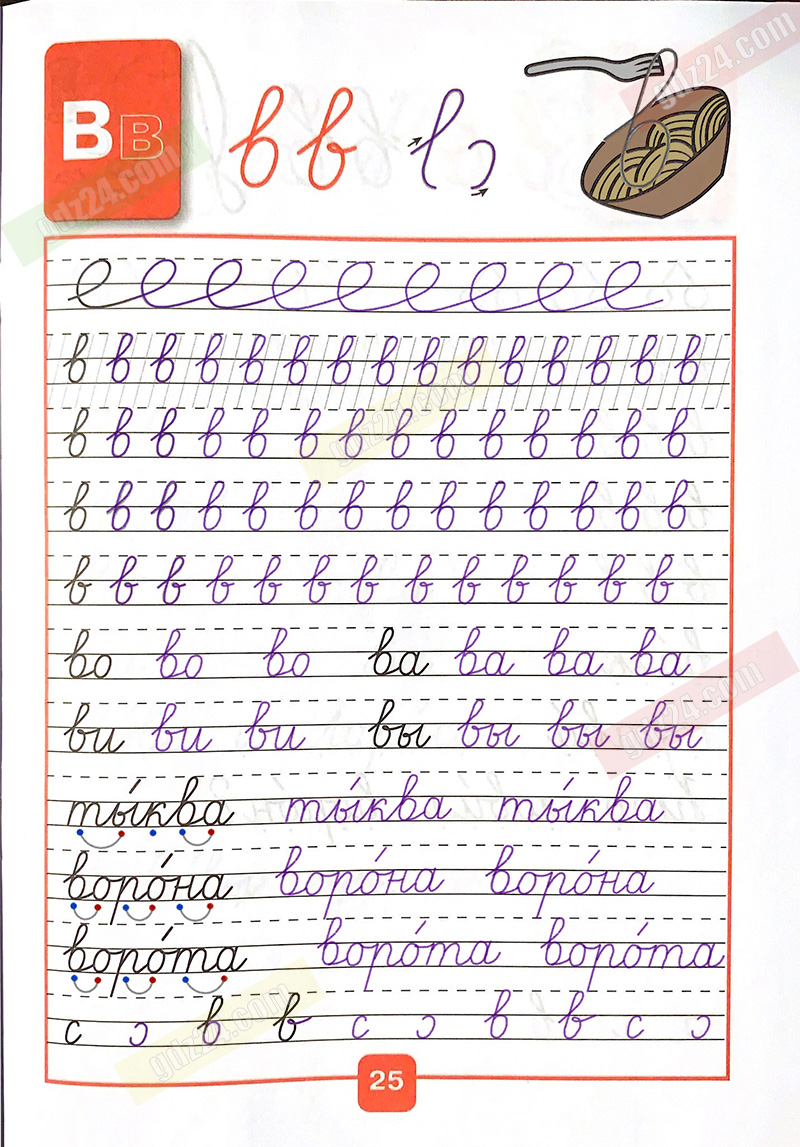 В в в в
gdz24.com
gdz24.com
в в в в в в в в в в в в в в в
в в в в в в в в в в в в в в
gdz24.com
в в в в в в в в в в в в в в
в в в в в в в в в в в в в
во во во ва ва ва ва
ви ви ви вы вы вы вы
gdz24.com
ты́ква ты́ква ты́ква
воро́на воро́на воро́на
воро́та воро́та воро́та
с ɔ в в с ɔ в в с ɔ
gdz24.com
25